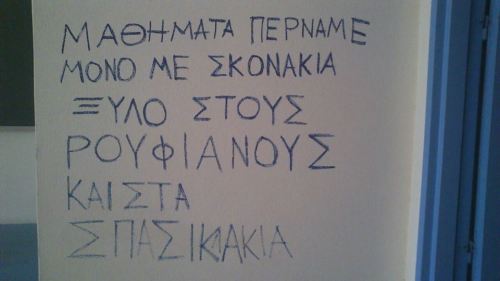 ΜΑΘΗΜΑΤΑ ΠΕΡΝΑΜΕ
ΜΟΝΟ ΜΕ ΣΚΟΝΑΚΙΑ
ΞΥΛΟ ΣΤΟΥΣ
ΡΟΥΦΙΑΝΟΥΣ
ΚΑΙ ΣΤΑ
ΣΠΑΣΙΚΛΑΚΙΑ